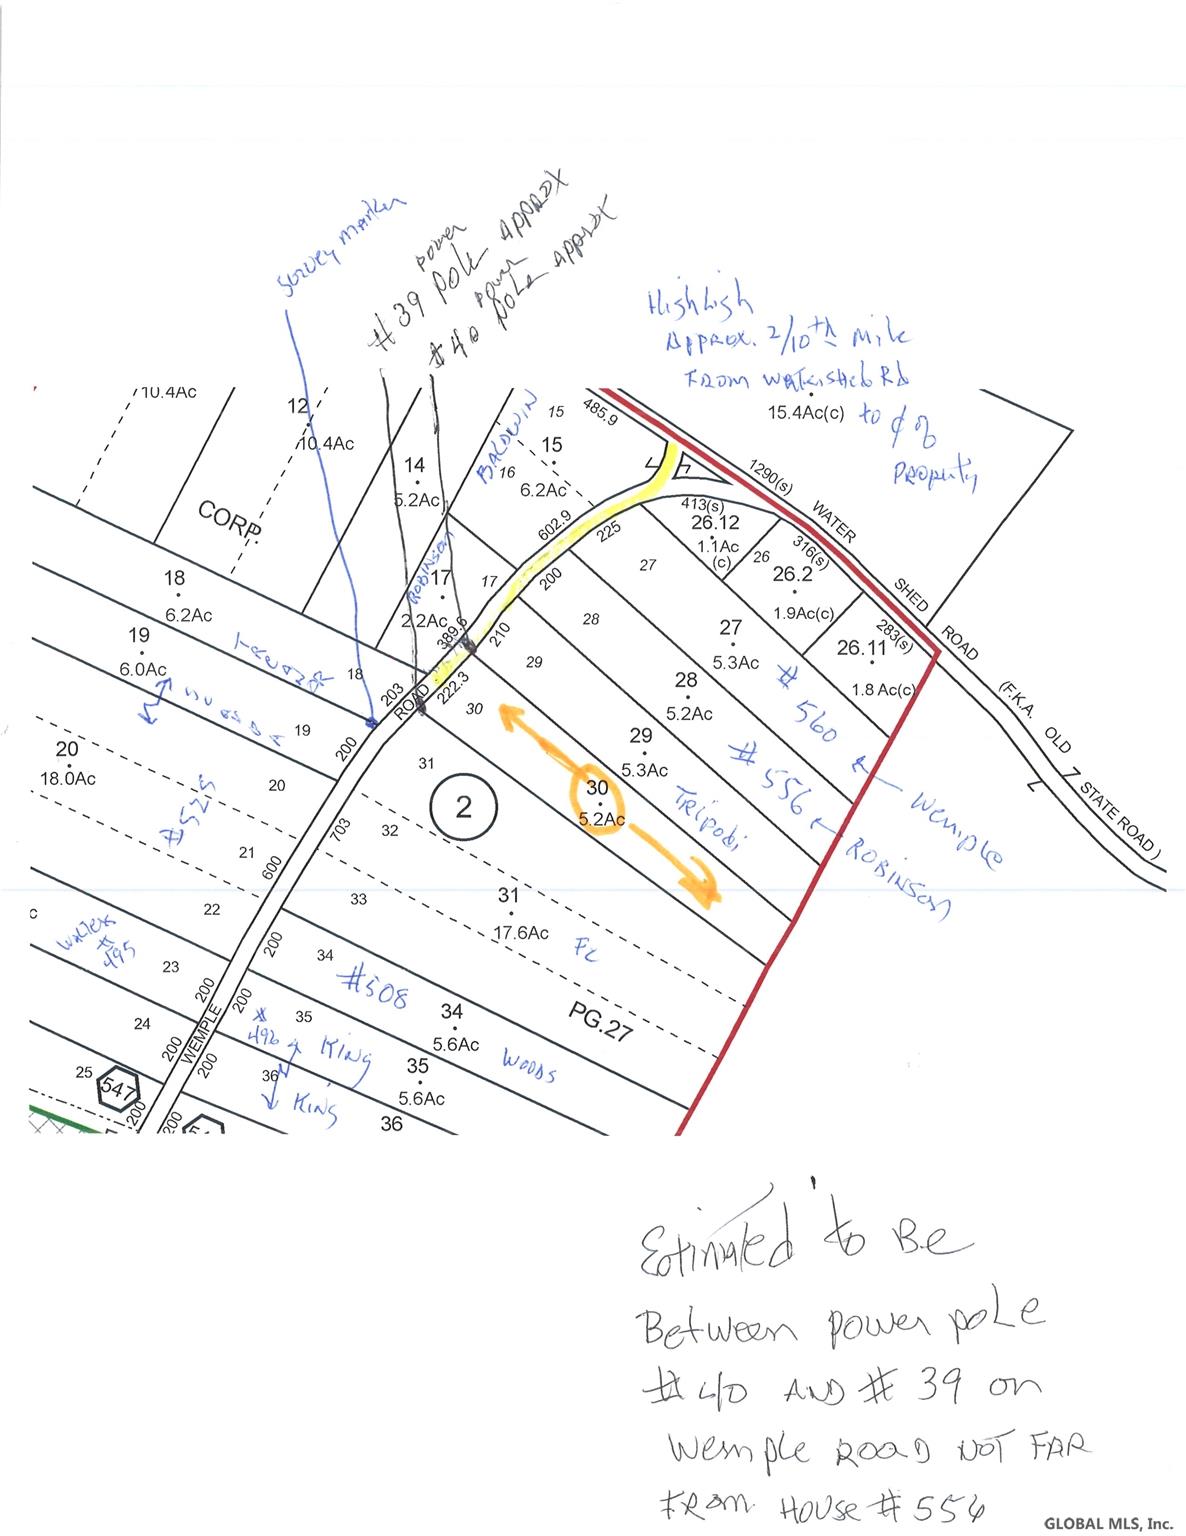 Survey Marker
#39 power pole Approx
#40 power pole Approx
Highligh
Approx. 2/10th Mile
From Watershed Rd
to ¢ of
Property
15.4Ac(c)
10.4Ac
12
10.4Ac
14
5.2Ac
BALDWIN
15
16
15
6.2Ac
485.9
1290(s)
WATER
SHED
ROAD
(F.K.A. OLD STATE ROAD )
CORP.
602.9
225
413(s)
26.12
1.1Ac
(c)
316(s)
26
26.2
1.9Ac(c)
283(s)
26.11
1.8 Ac(c)
18
6.2Ac
ROBINSON
17
17
2.2Ac
389.6
200
210
27
27
5.3Ac
28
28
5.2Ac
29
29
5.3Ac
#560
Wemple
#556
ROBINSON
Tripodi
19
6.0Ac
18
203
ROAD
222.3
30
30
5.2Ac
20
18.0Ac
19
200
20
#525
21
22
600
703
31
32
33
2
31
17.6Ac
PG.27
c
#495
23
24
25
547
200
200
200
WEMPLE
200
200
200
200
200
34
#508
34
5.6Ac
WOODS
35
#496
KING
35
5.6Ac
36
KING
36
Estimated to Be
Between power pole
#40 AND #39 on
Wemple ROAD NOT FAR
FROM HOUSE #556
GLOBAL MLS, Inc.